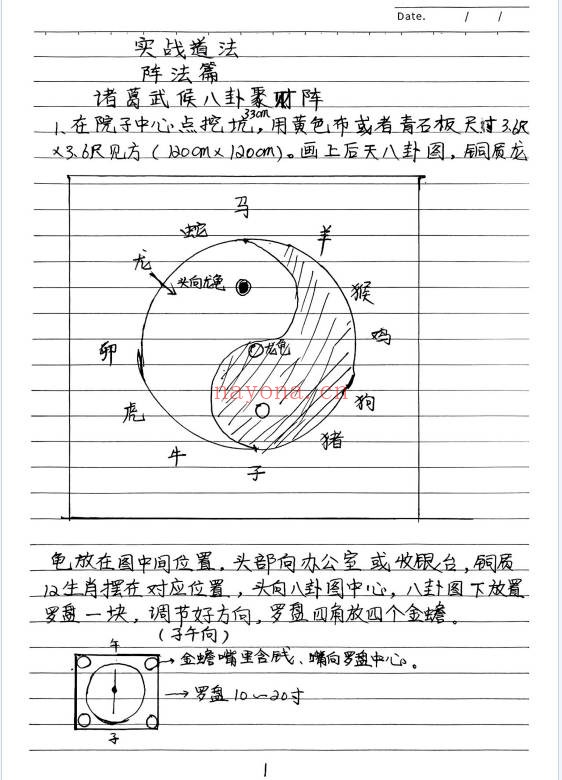 Date. / /
实战道法
阵法篇
诸葛武候八卦聚财阵
1、在院子中心点挖坑33cm，用黄色布或者青石板尺寸3.6尺
×3.6尺见方（120cm×120cm）。画上后天八卦图，铜质龙
马
蛇 羊
龙
头向龙龟 猴
卯 龙龟 鸡
nayona.cn
虎 狗
猪
牛
子
龟放在图中间位置，头部向办公室或收银台，铜质
12生肖摆在对应位置，头向八卦图中心，八卦图下放置
罗盘一块，调节好方向，罗盘四角放四个金蟾。
（子午向）
午
金蟾嘴里含钱、嘴向罗盘中心。
罗盘10~20寸
子
1